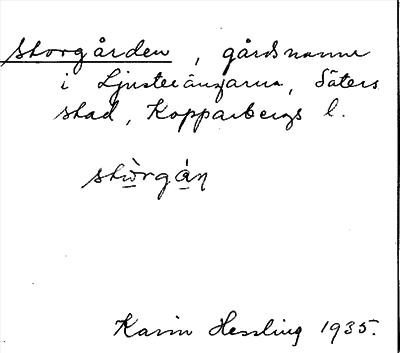 Storgården, gårdsnamn
i Ljusteränga­rna, Säters
stad, Kopparbergs l.
stòrgán
Karin Hessling 1935.